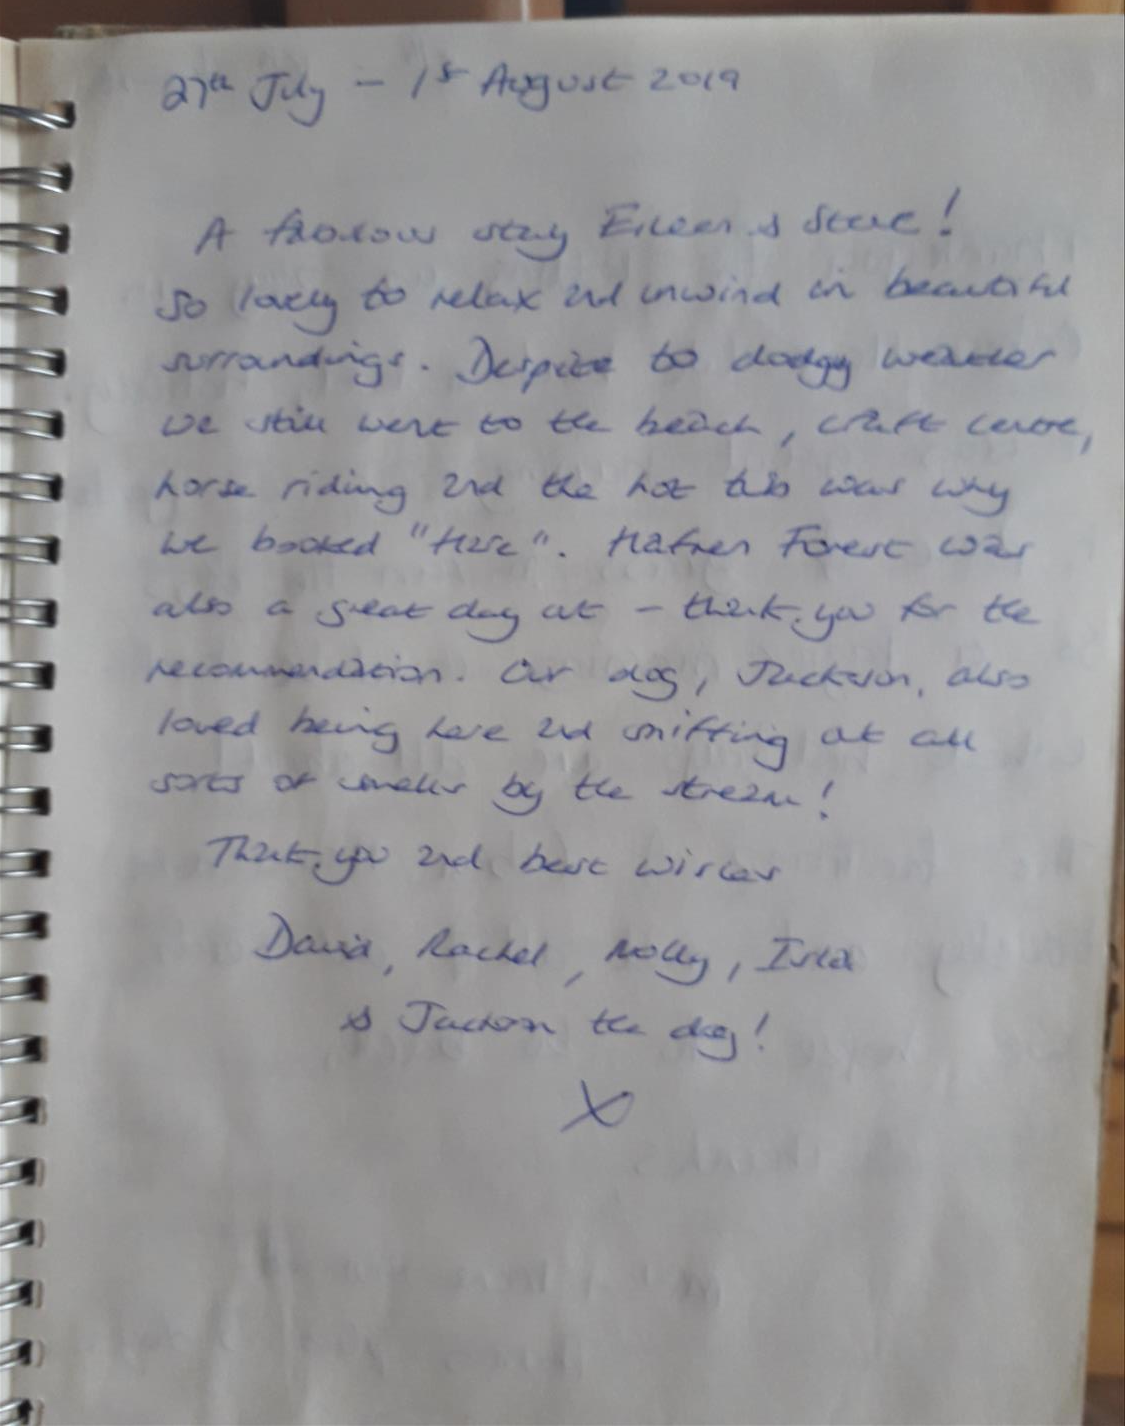 27th July - 1st August 2019
A fabulous stay Eileen & Steve!
So lovely to relax and unwind in beautiful
surroundings. Despite to dodgy weather
we still went to the beach, craft centre,
horse riding and the hot tub was why
we booked "Here". Hafren Forest was
also a great day out - thank you for the
recommendation. Our dog, Jackson, also
loved being here and sniffing at all
sorts of smells by the stream!
Thank you and best wishes
David, Rachel, Molly, Isla
& Jackson the dog!
X